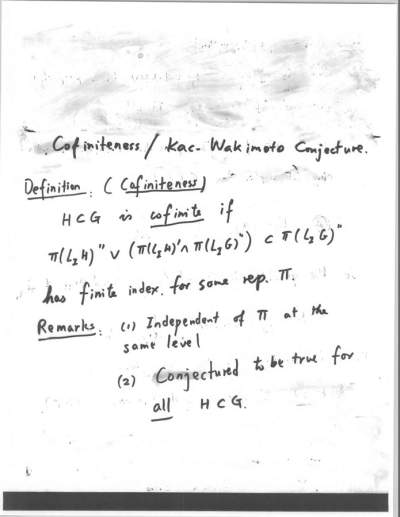 Cofiniteness / Kac-Wakimoto Conjecture.
Definition: (Cofiniteness)
H ⊂ G is cofinite if
π(L_I H)" ∨ (π(L_I H)' ∩ π(L_I G)") ⊂ π(L_I G)"
has finite index. for some rep. π.
Remarks: (1) Independent of π at the
same level
(2) Conjectured to be true for
all H ⊂ G.